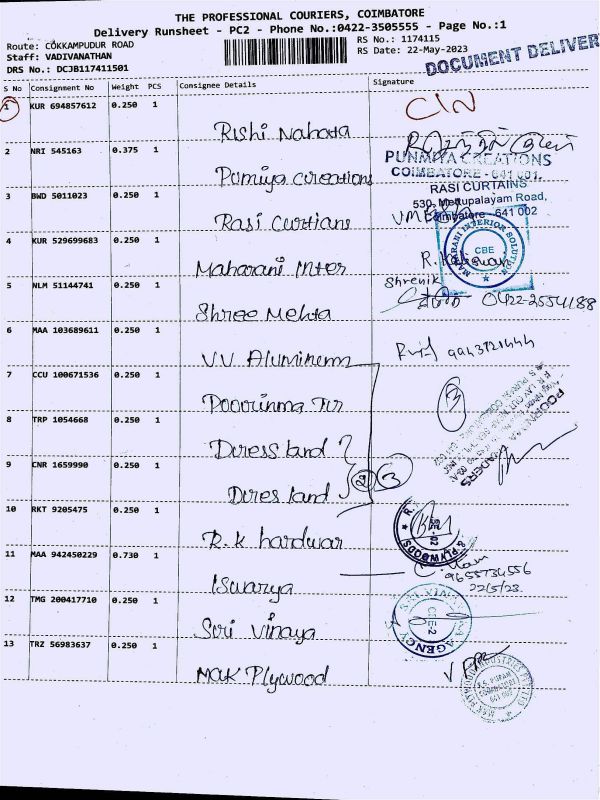 THE PROFESSIONAL COURIERS, COIMBATORE
Delivery Runsheet - PC2 - Phone No.:0422-3505555 - Page No.:1
Route: COKKAMPUDUR ROAD
RS No.: 1174115
Staff: VADIVANATHAN
RS Date: 22-May-2023
DRS No.: DCJB117411501
DOCUMENT DELIVER
S No Consignment No Weight PCS Consignee Details Signature
1 KUR 694857612 0.250 1
Rishi Nahata
CIN
2 NRI 545163 0.375 1
Pumiya creations
PUNMIYA CREATIONS
COIMBATORE - 641 001.
3 BWD 5011023 0.250 1
Rasi Curtians
RASI CURTAINS
530, Mettupalayam Road,
Coimbatore - 641 002
4 KUR 529699683 0.250 1
Maharani Inter
MAHARANI INTERIOR SOLUTION
CBE
5 NLM 51144741 0.250 1
Shree Mehta
Shrenik
0422-2554188
6 MAA 103689611 0.250 1
V.V. Aluminem
9943721444
7 CCU 100671536 0.250 1
Poorinma Tir
3
8 TRP 1054668 0.250 1
Diress land
9 CNR 1659990 0.250 1
Dires land
3
10 RKT 9205475 0.250 1
R.K hardwar
& PLYWOODS
11 MAA 942450229 0.730 1
Iswarya
9655734556
22/5/23
12 TMG 200417710 0.250 1
Siri Vinaya
SRI VINAYAGA AGENCY
CBE-2
13 TRZ 56983637 0.250 1
Mak Plywood
MAK PLYWOOD INDUSTRIES PVT LTD
R.S. PURAM
COIMBATORE
641 002